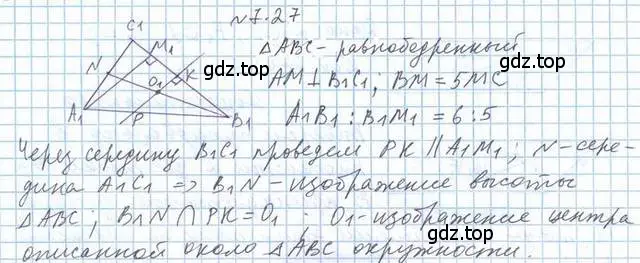 №7.27
C₁
M₁
N
O₁
K
A₁
P
B₁
gdz.top
ΔABC - равнобедренный
gdz.top
AM ⊥ B₁C₁; BM = 5MC
A₁B₁ : B₁M₁ = 6:5
Через середину B₁C₁ проведем PK ∥ A₁M₁; N - сере-
дина A₁C₁ => B₁N - изображение высоты
gdz.top
gdz.top
ΔABC; B₁N ∩ PK = O₁. O₁ - изображение центра
описанной около ΔABC окружности.